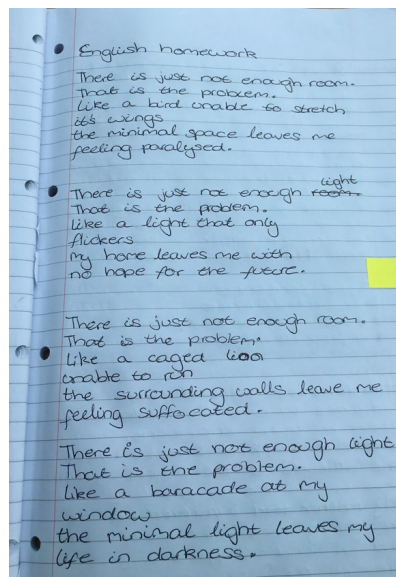 English homework
There is just not enough room.
That is the problem.
Like a bird unable to stretch
it's wings
the minimal space leaves me
feeling paralysed.
There is just not enough room light
That is the problem.
Like a light that only
flickers
my home leaves me with
no hope for the future.
There is just not enough room.
That is the problem.
Like a caged lion
unable to run
the surrounding walls leave me
feeling suffocated.
There is just not enough light
That is the problem.
Like a baracade at my
window
the minimal light leaves my
life in darkness.